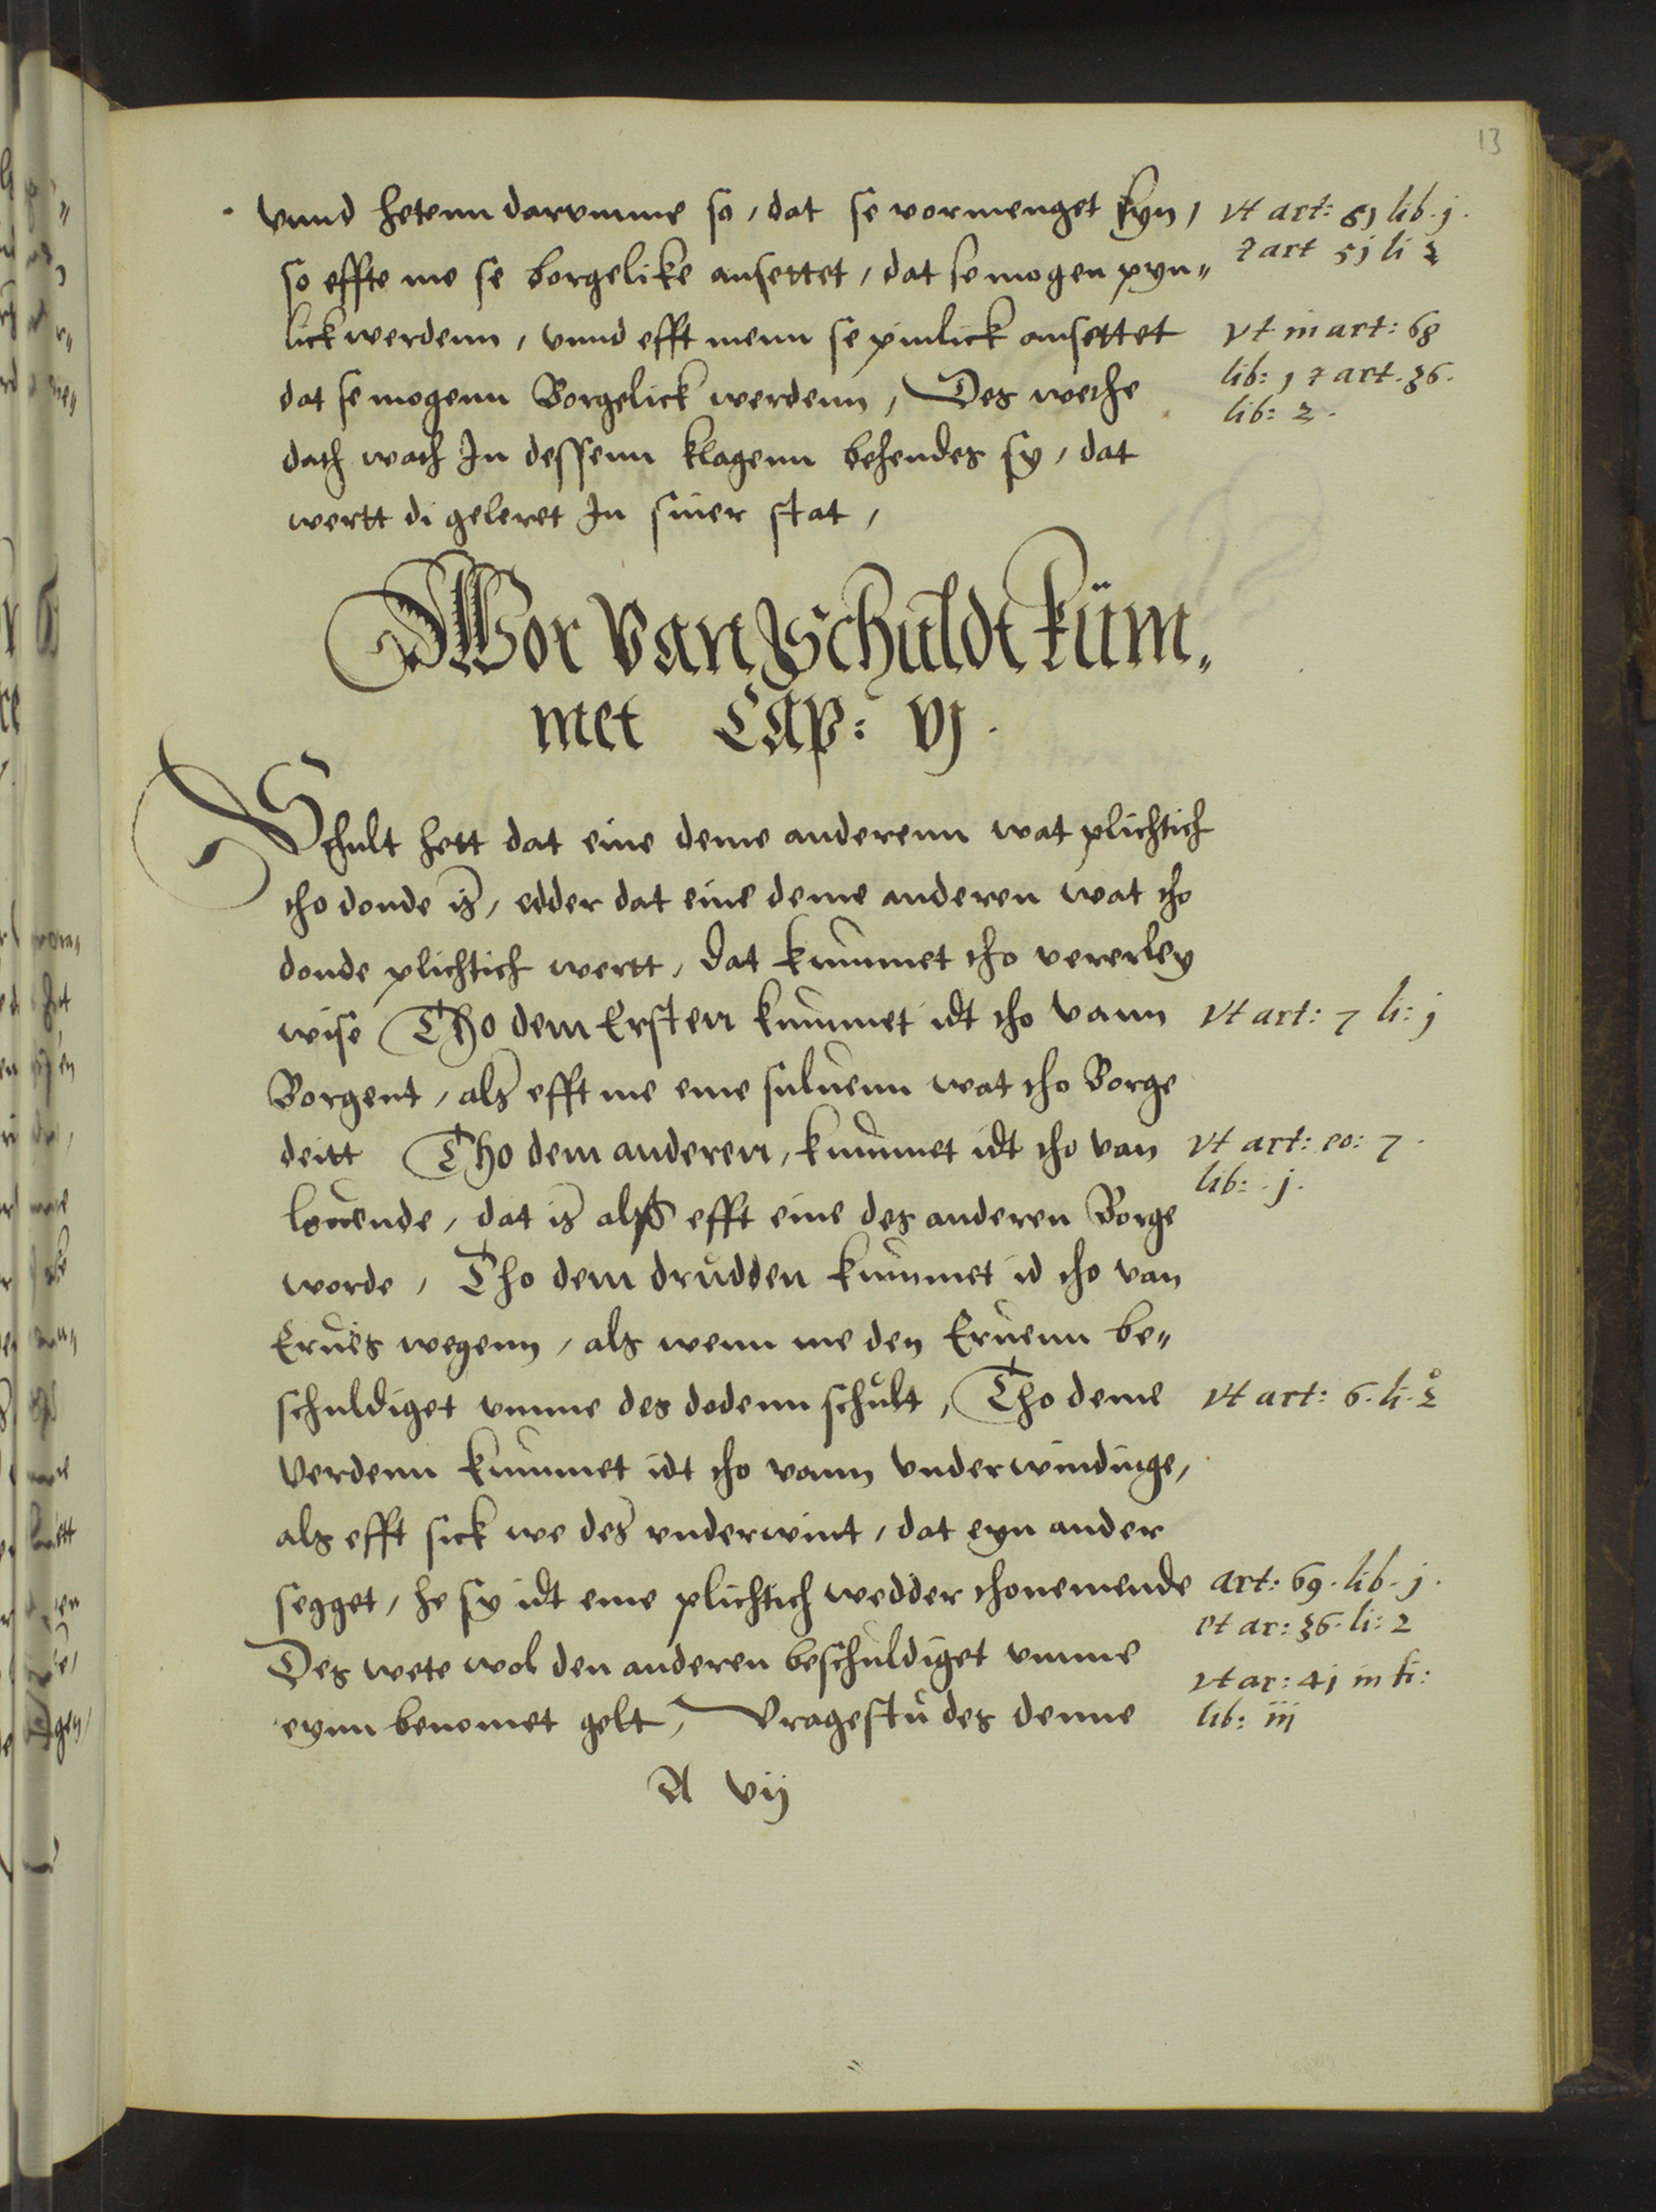 13
vnnd hetenn darvmme so, dat se vormenget syn,
so effte me se borgelike ansettet, dat se mogen pyn„
lick werdenn, vnnd efft menn se pinlick ansettet
dat se mogenn Borgelick werdenn, Des welche
doch woch In dessenn klagenn behendes sy, dat
wertt di geleret In siner stat,
vt art: 61 lib. j.
z art 51 li 2
vt in art: 68
lib: 1 z art. 36.
lib: 2.
Wor van Schuldt küm„
met Cap: vj.
Schult hett dat eine deme anderenn wat plichtich
tho donde is, edder dat eine deme anderen wat tho
donde plichtich wertt, dat kummet tho vererley
wise Tho dem Ersten kummet idt tho vann
Borgent, als efft me eme suluenn wat tho Borge
deitt Tho dem anderen, kummet idt tho van
louende, dat is alß efft eine des anderen Borge
worde, Tho dem drůdden kummet id tho van
Erues wegenn, als wenn me den Eruenn be„
schuldiget vmme des dodenn schult, Tho deme
Verdenn kummet idt tho vann vnderwindinge,
als efft sick we des vnderwint, dat eyn ander
segget, he sy idt eme plichtich wedder thonemende
Des wete wol den anderen beschuldiget vmme
eynn benomet gelt, Vragestu des denne
vt art: 7 li: j
vt art: eo: 7.
lib: j.
vt art: 6. li. 2
art: 69. lib. j.
et ar: 36. li: 2
vt ar: 41 in fi:
lib: iij
A vij